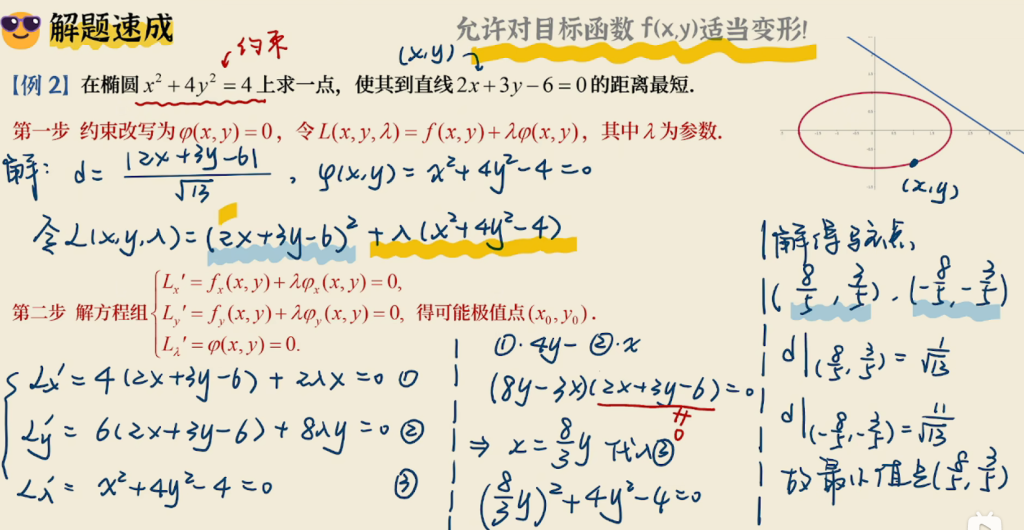 解题速成
允许对目标函数 f(x,y)适当变形!
约束
(x,y)
【例 2】在椭圆 x² + 4y² = 4 上求一点，使其到直线 2x + 3y − 6 = 0 的距离最短.
第一步 约束改写为 φ(x, y) = 0，令 L(x, y, λ) = f(x, y) + λφ(x, y)，其中 λ 为参数.
解: d = |2x+3y-6|/√13 , φ(x,y) = x²+4y²-4=0
(x,y)
令 L(x,y,λ) = (2x+3y-6)² + λ(x²+4y²-4)
第二步 解方程组 { Lₓ′ = fₓ(x, y) + λφₓ(x, y) = 0,
L_y′ = f_y(x, y) + λφ_y(x, y) = 0, 得可能极值点 (x₀, y₀).
L_λ′ = φ(x, y) = 0.
{ Lx′ = 4(2x+3y-6) + 2λx = 0 ①
Ly′ = 6(2x+3y-6) + 8λy = 0 ②
Lλ′ = x²+4y²-4 = 0 ③
①·4y - ②·x
(8y-3x)(2x+3y-6) = 0
≠
0
⇒ x = 8/3 y 代入③
(8/3 y)² + 4y² - 4 = 0
解得驻点,
(8/5, 3/5), (-8/5, -3/5)
d|(8/5, 3/5) = 1/√13
d|(-8/5, -3/5) = 11/√13
故最小值点(8/5, 3/5)